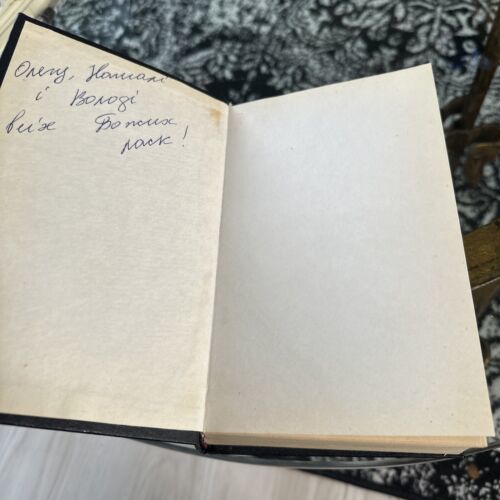 Олегу, Наталі
і Володі
всіх Божих
ласк!